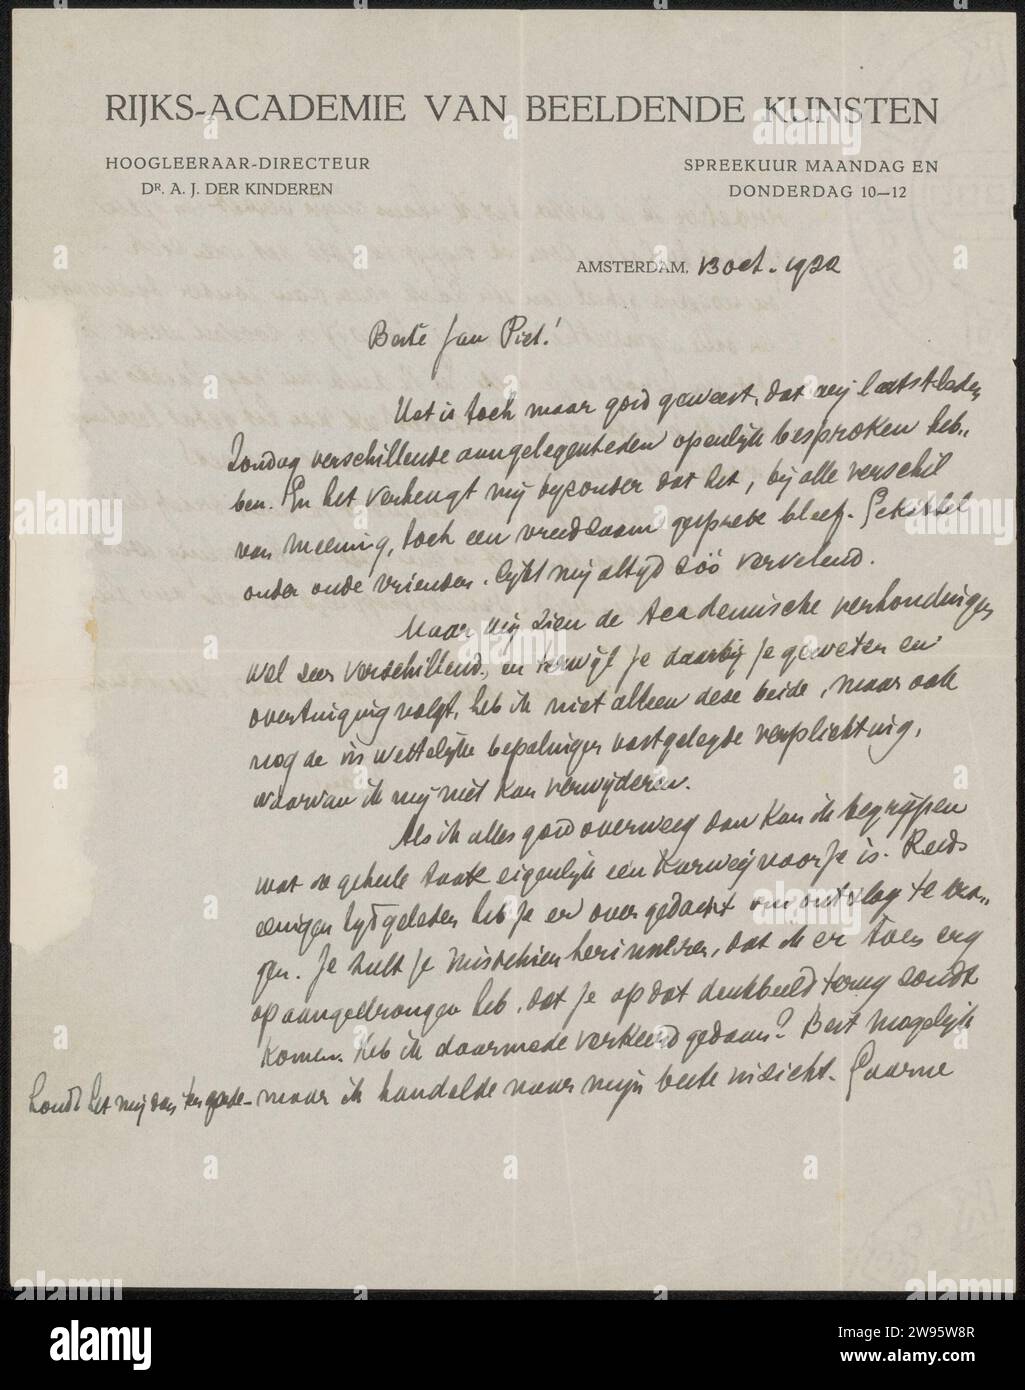 RIJKS-ACADEMIE VAN BEELDENDE KUNSTEN
HOOGLEERAAR-DIRECTEUR
DR. A. J. DER KINDEREN
SPREEKUUR MAANDAG EN
DONDERDAG 10—12
AMSTERDAM, 13 oct. 1922
Beste Jan Piet!
Het is toch maar goed geweest, dat wij laatstleden
Zondag verschillende aangelegentheden openlijk besproken heb„
ben. En het verheugt mij byzonder dat het, bij alle verschil
van meening, toch een vreedzaam gesprek bleef. Gekibbel
onder oude vrienden. lijkt mij altyd zóó vervelend.
Maar wij zien de Academische verhoudingen
wel zeer verschillend, en terwijl je daarbij je geweten en
overtuiging volgt, heb ik niet alleen deze beide, maar ook
nog de in wettelijke bepalingen vastgelegde verplichting,
waarvan ik mij niet kan verwijderen.
Als ik alles goed overweeg dan kan ik begrijpen
wat 'n geheele taak eigenlijk een karweij voor je is. Reeds
eenigen tyd geleden heb je er over gedacht om ontslag te vra„
gen. Je zult je misschien herinneren, dat ik er toen erg
op aangedrongen heb, dat je op dat denkbeeld terug zoudt
komen. Heb ik daarmede verkeerd gedaan? Best mogelijk
houdt het mij dan ten goede — maar ik handelde naar mijn beste inzicht. Gaarne
alamy
Image ID: 2W95W8R
www.alamy.com